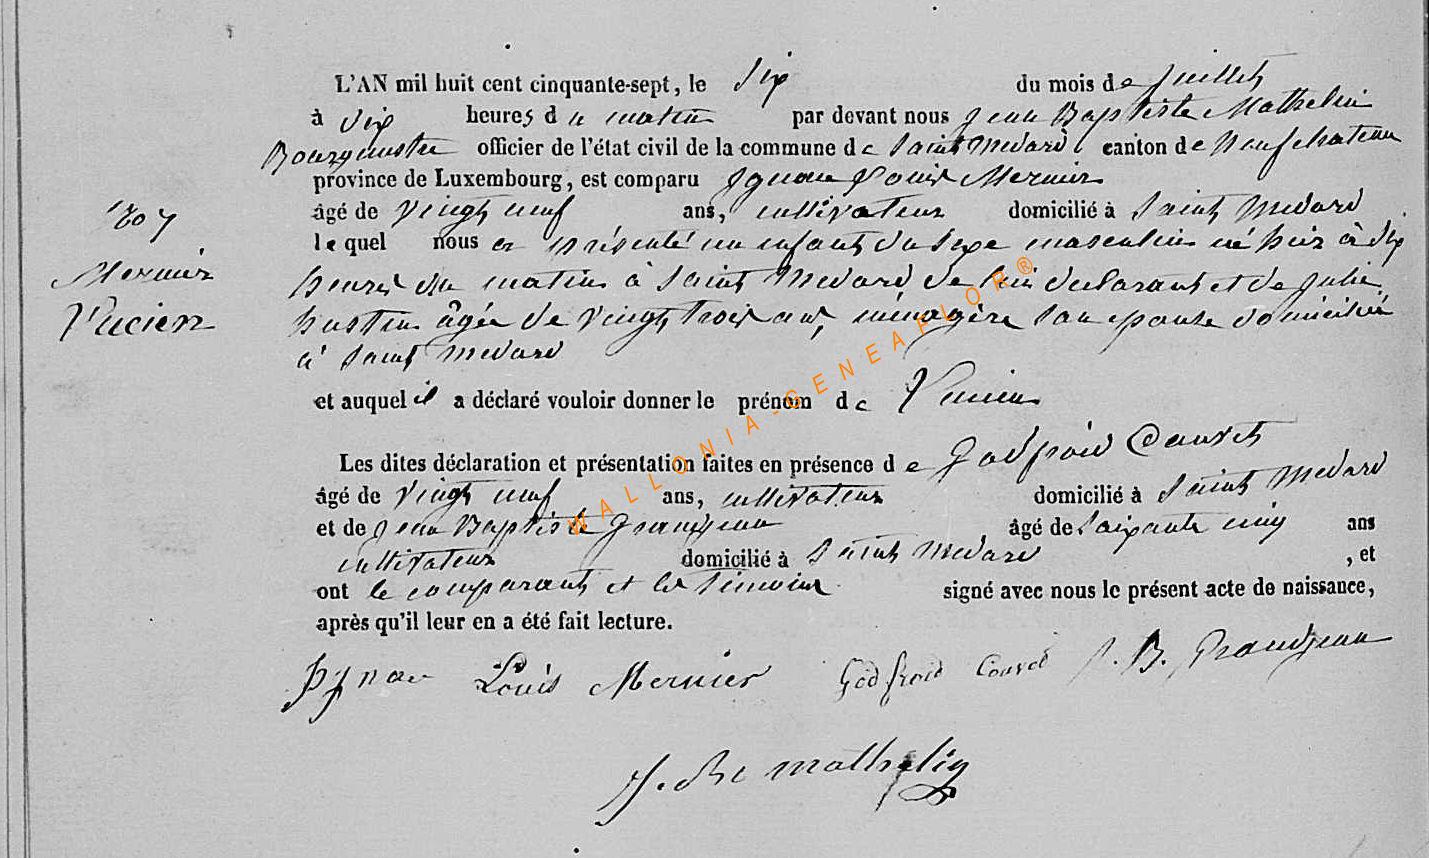 L'AN mil huit cent cinquante-sept, le six du mois de juillet
à dix heures du matin par devant nous Jean Baptiste Mathelin
Bourgmestre officier de l'état civil de la commune de Saint Médard canton de Neufchateau
province de Luxembourg, est comparu Ignace Louis Mernier
âgé de vingt neuf ans, cultivateur domicilié à Saint Médard
lequel nous a présenté un enfant du sexe masculin né hier à dix
Mernier
heures du matin à Saint Médard de lui déclarant et de Julie
Lucien
hustin âgée de vingt trois ans, ménagère son epouse domiciliée
à Saint Médard
et auquel il a déclaré vouloir donner le prénom de Lucien
Les dites déclaration et présentation faites en présence de Godfroid Conrot
âgé de vingt neuf ans, cultivateur domicilié à Saint Médard
et de Jean Baptiste Grandjean âgé de soixante cinq ans
cultivateur domicilié à Saint Médard, et
ont le comparant et les témoins signé avec nous le présent acte de naissance,
après qu'il leur en a été fait lecture.
Louis Mernier Godfroid J. B. Grandjean
J. Bte mathelin
WALLONIA-GENEAFLOR®